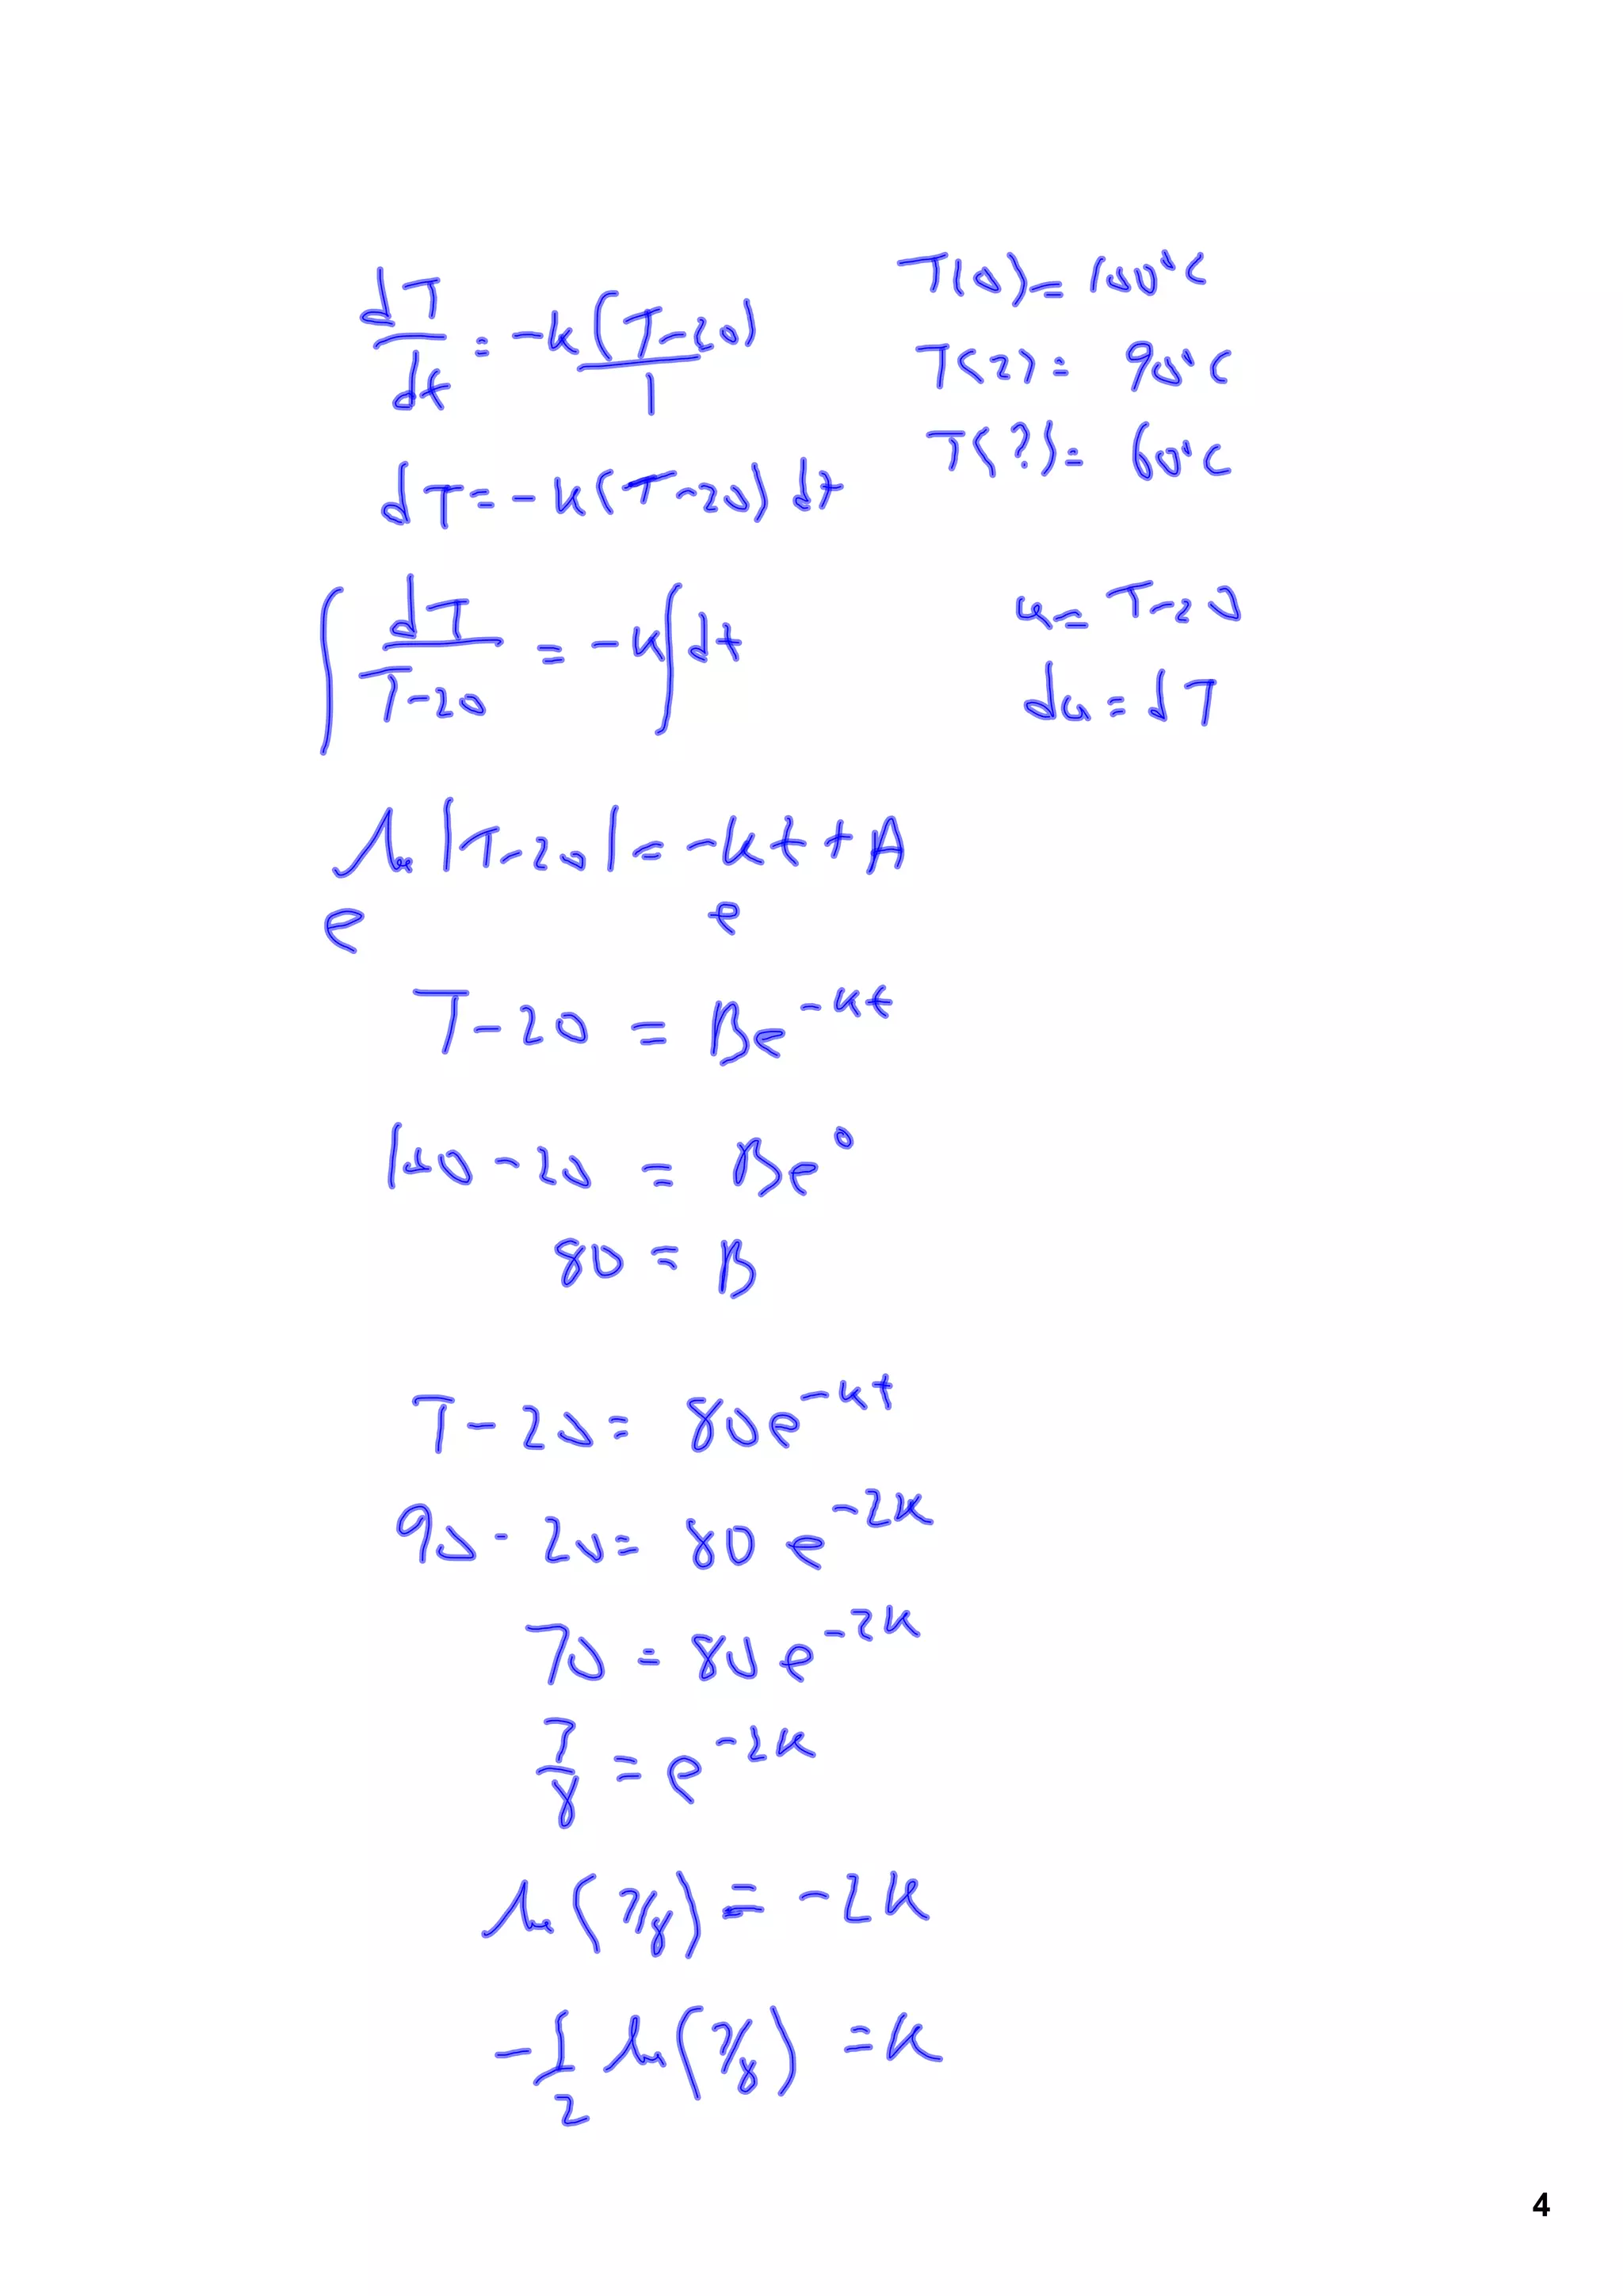 dT/dt = -k(T-20)/1
T(0) = 100°C
T(2) = 90°C
T(?) = 60°C
dT = -k(T-20) dt
∫ dT/(T-20) = -k ∫ dt
u = T-20
du = dT
ln |T-20| = -kt + A
e e
T-20 = Be^-kt
100-20 = Be^0
80 = B
T-20 = 80e^-kt
90-20 = 80 e^-2k
70 = 80 e^-2k
7/8 = e^-2k
ln(7/8) = -2k
-1/2 ln(7/8) = k
4